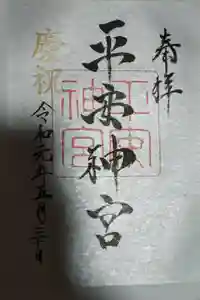 奉拝
平安神宮
慶祝
令和元年五月三十日
平安神宮